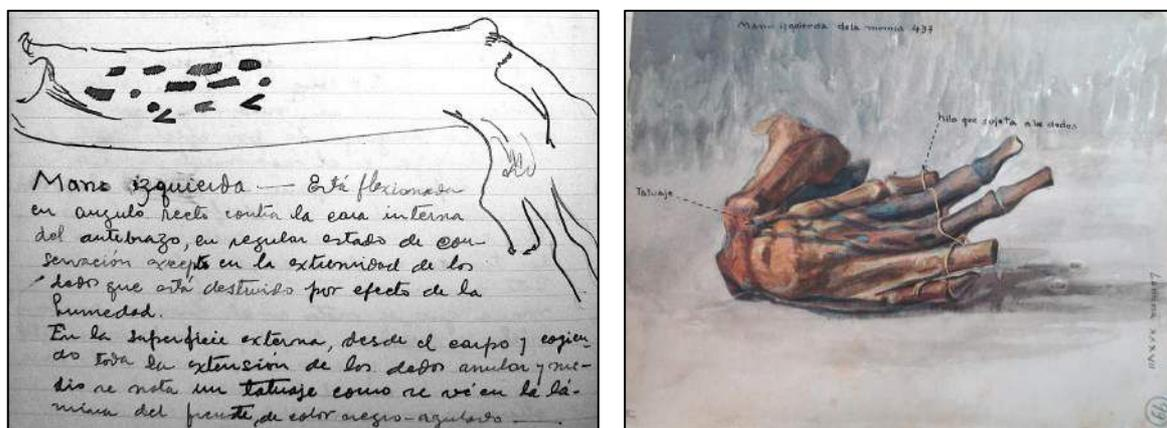 Mano izquierda — Está flexionada
en angulo recto contra la cara interna
del antebrazo, en regular estado de con-
servación excepto en la extremidad de los
dedos que está destruido por efecto de la
humedad.
En la superficie externa, desde el carpo y cogien-
do toda la extensión de los dedos anular y me-
dio se nota un tatuaje como se vé en la lá-
mina del frente, de color negro-azulado —.
Mano izquierda de la momia 437
hilo que sujeta a los dedos
Tatuaje